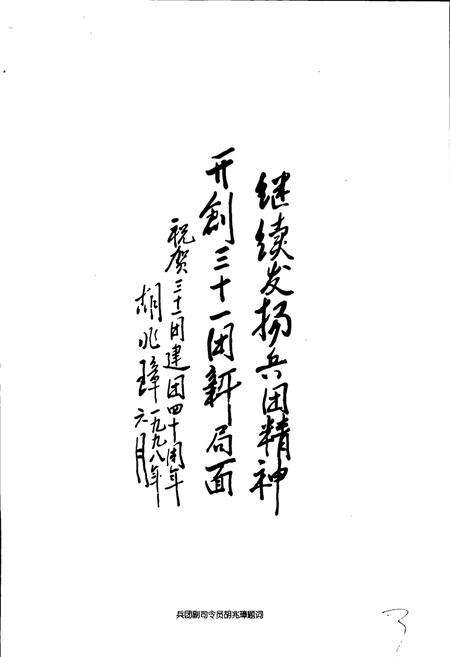 继续发扬兵团精神
开創三十一团新局面
祝贺三十一团建团四十周年
胡兆璋一九九八年
六月
兵团副司令员胡兆璋题词
3